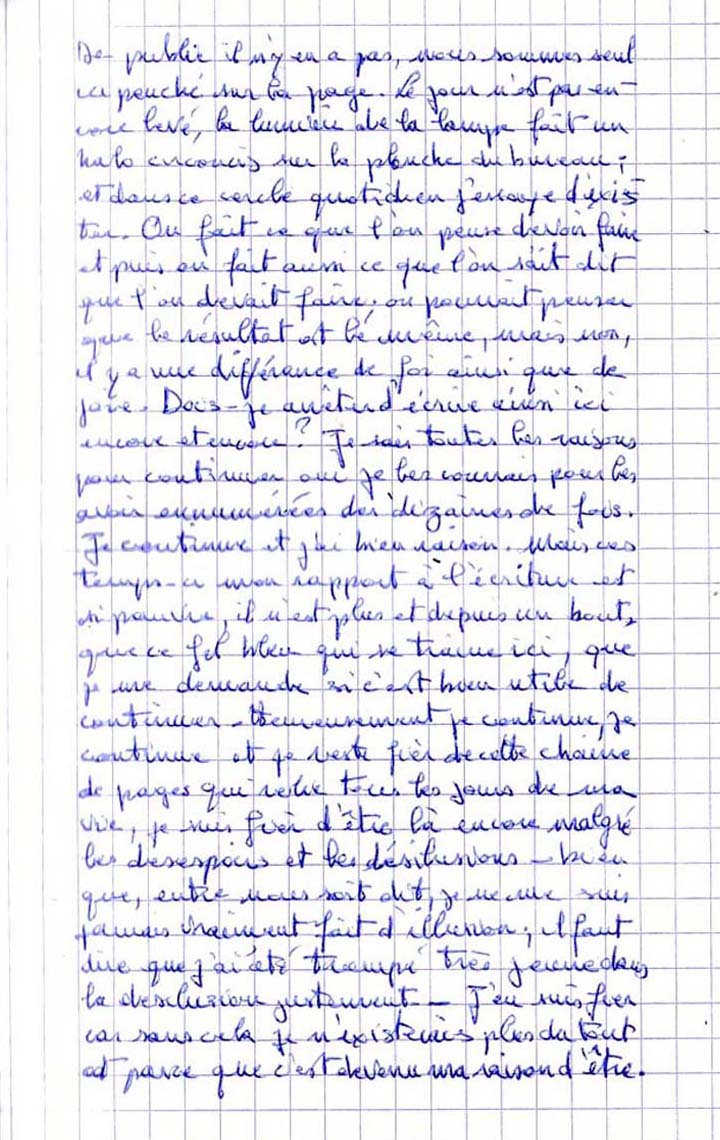 De public il n'y en a pas, nous sommes seul
ici penché sur la page. Le jour n'est pas en-
core levé, la lumière de la lampe fait un
halo circoncis sur la planche du bureau ;
et dans ce cercle quotidien j'essaye d'exis-
ter. On fait ce que l'on pense devoir faire
et puis on fait aussi ce que l'on s'ait dit
que l'on devait faire ; on pourrait penser
que le résultat est le même, mais non,
il y a une différance de foi ainsi que de
joie. Dois-je arrêter d'écrire ainsi ici
encore et encore ? Je sais toutes les raisons
pour continuer oui je les connais pour les
avoir ennumérées des dizaines de fois.
Je continue et j'ai bien raison. Mais ces
temps-ci mon rapport à l'écriture est
si pauvre, il n'est plus et depuis un bout,
que ce fil bleu qui se traine ici, que
je me demande si c'est bien utile de
continuer - Heureusement je continue, je
continue et je reste fier de cette chaine
de pages qui relie tous les jours de ma
vie, je suis fier d'être là encore malgré
les desespoirs et les désilusions - bien
que, entre nous soit dit, je ne me suis
jamais vraiment fait d'illusion ; il faut
dire que j'ai été trempé très jeune dans
la desilusion justement - J'en suis fier
car sans cela je n'existerais plus du tout
et parce que c'est devenu ma raison d'être.